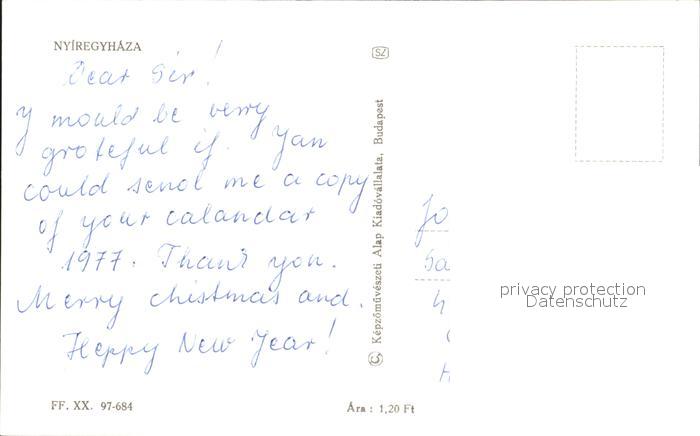 NYÍREGYHÁZA
Dear Sir!
Y mould be verry
grateful if. Yan
could send me a copy
of your calandar
1977. Thank you.
Merry chistmas and.
Heppy New Year!
FF. XX. 97-684
SZ
© Képzőművészeti Alap Kiadóvállalata, Budapest
Ára : 1,20 Ft
Jo
Sa
privacy protection
Datenschutz